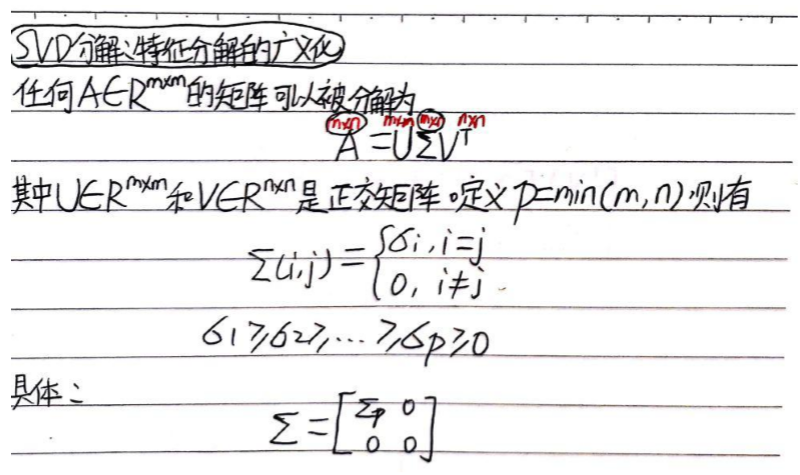 SVD分解:特征分解的广义化
任何A∈R^{m×m}的矩阵可以被分解为
m×n m×m m×n n×n
A=UΣV^T
其中U∈R^{m×m}和V∈R^{n×n}是正交矩阵。定义p=min(m,n)则有
Σ(i,j)={σi, i=j
0, i≠j.
σ1≥σ2≥,...≥σp≥0
具体:
Σ=[Σp 0
0 0]